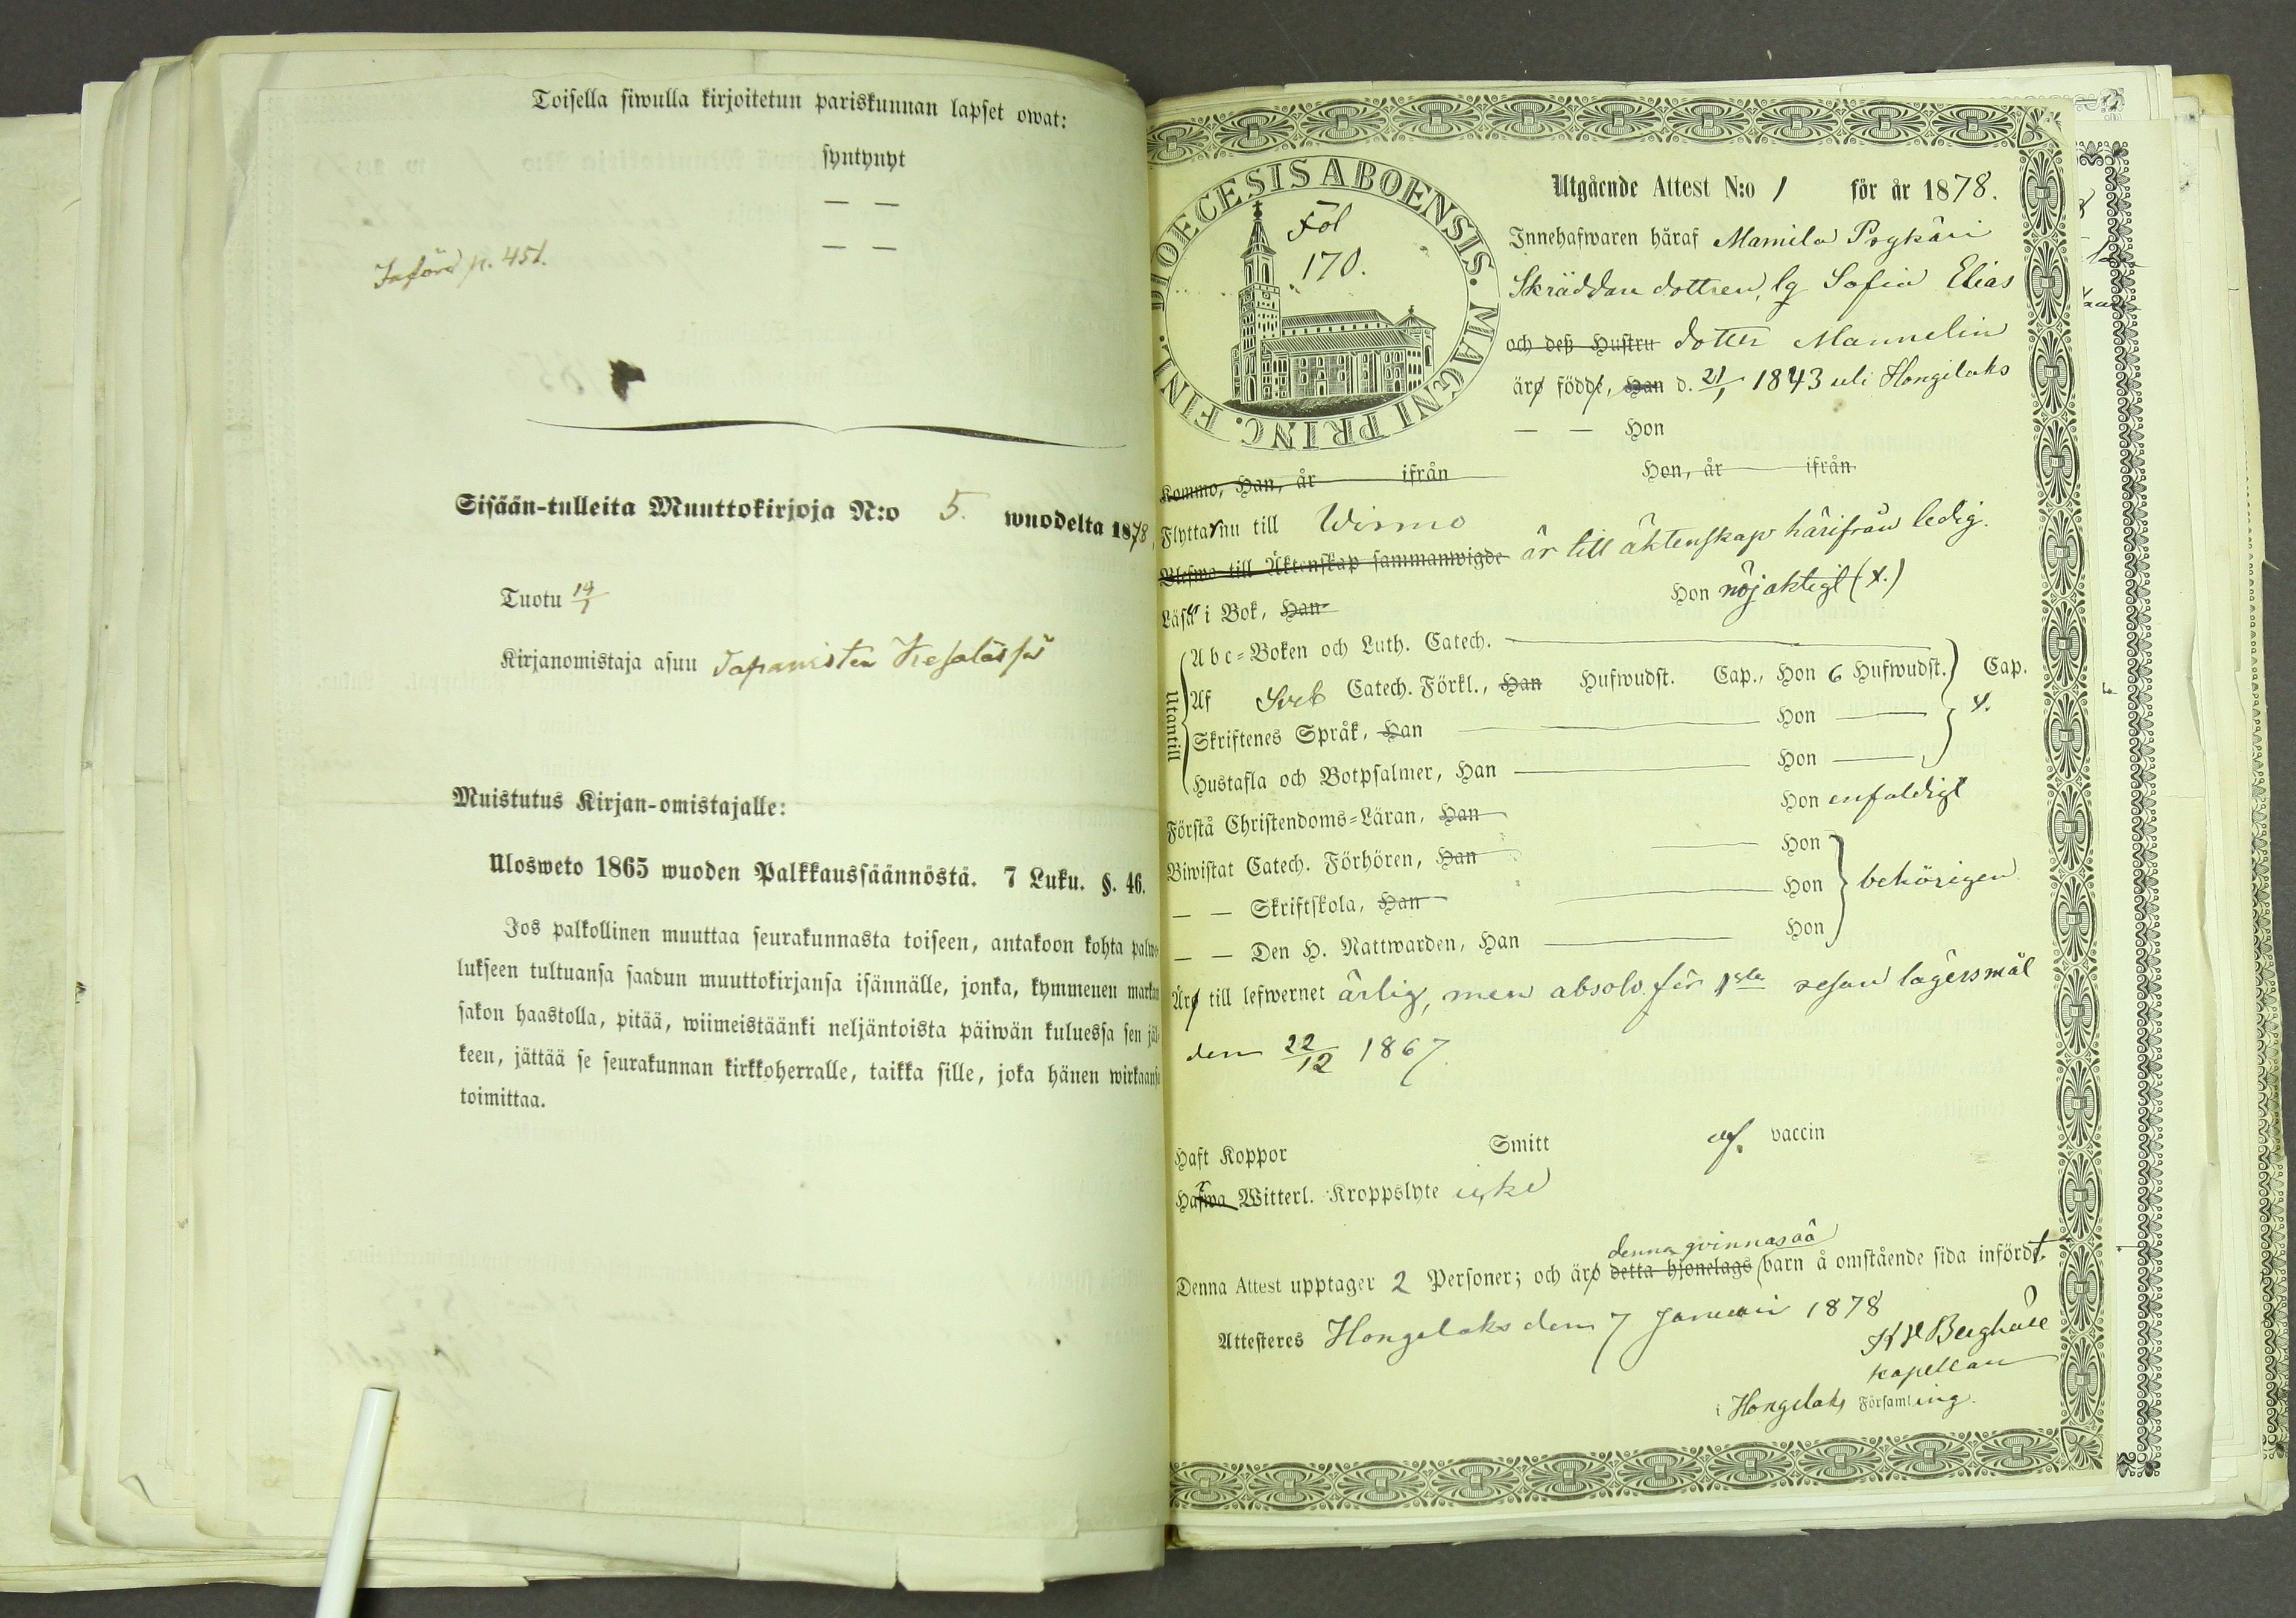 Toisella siwulla kirjoitetun pariskunnan lapset owat:
syntynyt
— —
— —
Införd p. 451.
Sisään-tulleita Muuttokirjoja N:o 5. wuodelta 1878,
Tuotu 14/1
Kirjanomistaja asuu Tapanisten
Muistutus Kirjan-omistajalle:
Ulosweto 1865 wuoden Palkkaussäännöstä. 7 Luku. §. 46.
Jos palkollinen muuttaa seurakunnasta toiseen, antakoon kohta palwe-
lukseen tultuansa saadun muuttokirjansa isännälle, jonka, kymmenen markan
sakon haastolla, pitää, wiimeistäänki neljäntoista päiwän kuluessa sen jäl-
keen, jättää se seurakunnan kirkkoherralle, taikka sille, joka hänen wirkaansa
toimittaa.
DIOECESIS ABOENSIS. MAGNI PRINC. FINL.
Fol
170.
Utgående Attest N:o 1 för år 1878.
Innehafwaren häraf Mamila
Skräddare dottren, lg Sofia Elias
och deß Hustru dotter Mannelin
äro född, Han d. 21/1 1843 uti Hongilaks
— — Hon
Kommo, Han, år ifrån Hon, år ifrån
Flyttar nu till Wirmo
Blefwo till Äktenskap sammanwigde är till äktenskap härifrån ledig.
Läser i Bok, Han Hon nöjaktigt (x.)
Utantill
Abc-Boken och Luth. Catech.
Af Sveb Catech. Förkl., Han Hufwudst. Cap., Hon 6 Hufwudst. Cap.
Skriftenes Språk, Han Hon x.
Hustafla och Botpsalmer, Han Hon
Förstå Christendoms-Läran, Han Hon enfaldigt
Biwistat Catech. Förhören, Han Hon
— — Skriftskola, Han Hon behörigen
— — Den H. Nattwarden, Han Hon
Äro till lefwernet ärlig, men absolv. för 1sta resan lägersmål
den 22/12 1867.
Haft Koppor Smitt af. vaccin
Hafwa Witterl. Kroppslyte icke
denna qvinnas oä
Denna Attest upptager 2 Personer; och äro detta hjonelags barn å omstående sida infördt.
Attesteres Hongilaks den 7 Januari 1878
Berghäll
kapellan
i Hongilaks Församling.